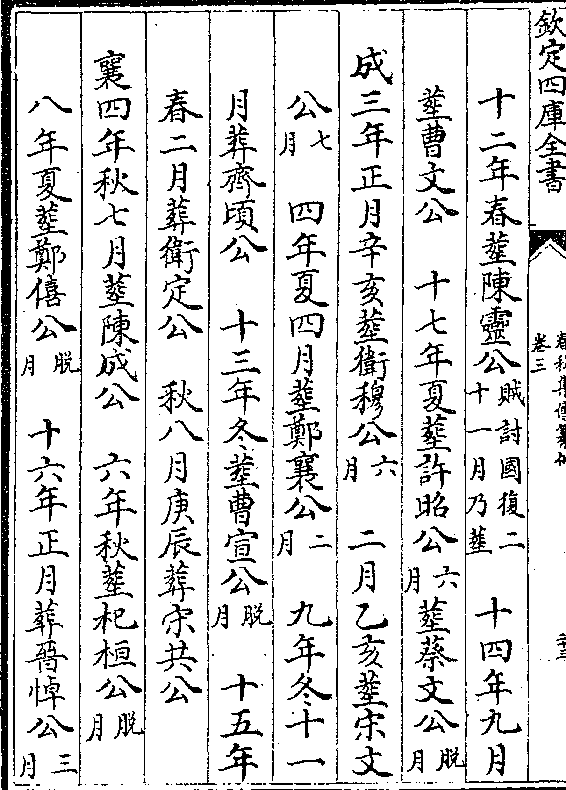 欽定四庫全書
卷三
十二年春塟陳靈公賊討國復二十一月乃塟 十四年九月
塟曹文公 十七年夏塟許昭公六月 塟蔡文公脫月
成三年正月辛亥塟衛穆公六月 二月乙亥塟宋文
公七月 四年夏四月塟鄭襄公二月 九年冬十一
月葬齊頃公 十三年冬塟曹宣公脫月 十五年
春二月葬衛定公 秋八月庚辰葬宋共公
襄四年秋七月塟陳成公 六年秋塟杞桓公脫月
八年夏塟鄭僖公脫月 十六年正月葬晉悼公三月